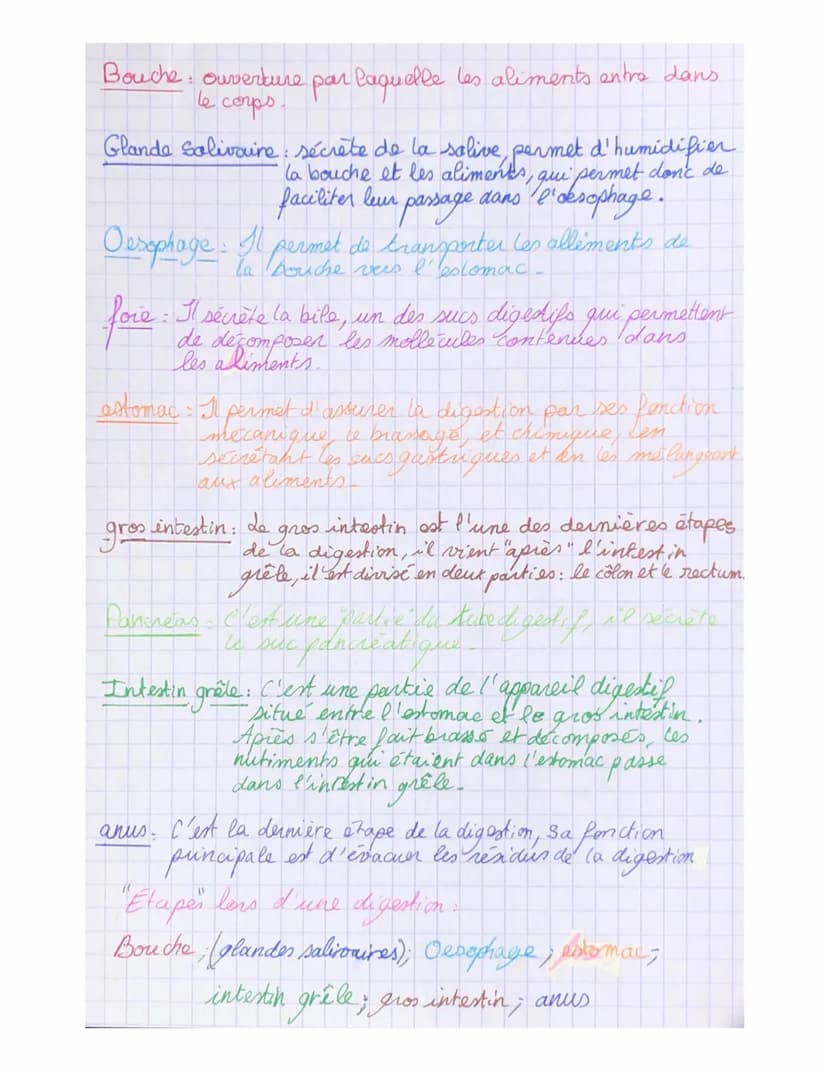 Bouche : ouverture par laquelle les aliments entre dans
le corps.
Glande Salivaire : sécrète de la salive, permet d'humidifier
la bouche et les aliments, qui permet donc de
faciliter leur passage dans l'oesophage.
Oesophage : Il permet de transporter les alliments de
la bouche vers l'estomac.
foie : Il sécrète la bile, un des sucs digestifs qui permettent
de décomposer les mollécules contenues dans
les aliments.
estomac : Il permet d'assurer la digestion par ses fonction
mécanique, le brassage, et chimique, en
sécrétant les sucs gastriques et en les mélangeant
aux aliments.
gros intestin : Le gros intestin est l'une des dernières étapes
de la digestion, il vient "après" l'intestin
grêle, il est divisé en deux parties : le côlon et le rectum.
Pancréas : C'est une partie du tube digestif, il sécrète
le suc pancréatique.
Intestin grêle : C'est une partie de l'appareil digestif
situé entre l'estomac et le gros intestin.
Après s'être fait brassé et décomposés, les
nutiments qui étaient dans l'estomac passe
dans l'intestin grêle.
anus : C'est la dernière étape de la digestion, sa fonction
principale est d'évacuer les résidus de la digestion
"Étapes" lors d'une digestion :
Bouche ; (glandes salivaires) ; Oesophage ; estomac ;
intestin grêle ; gros intestin ; anus